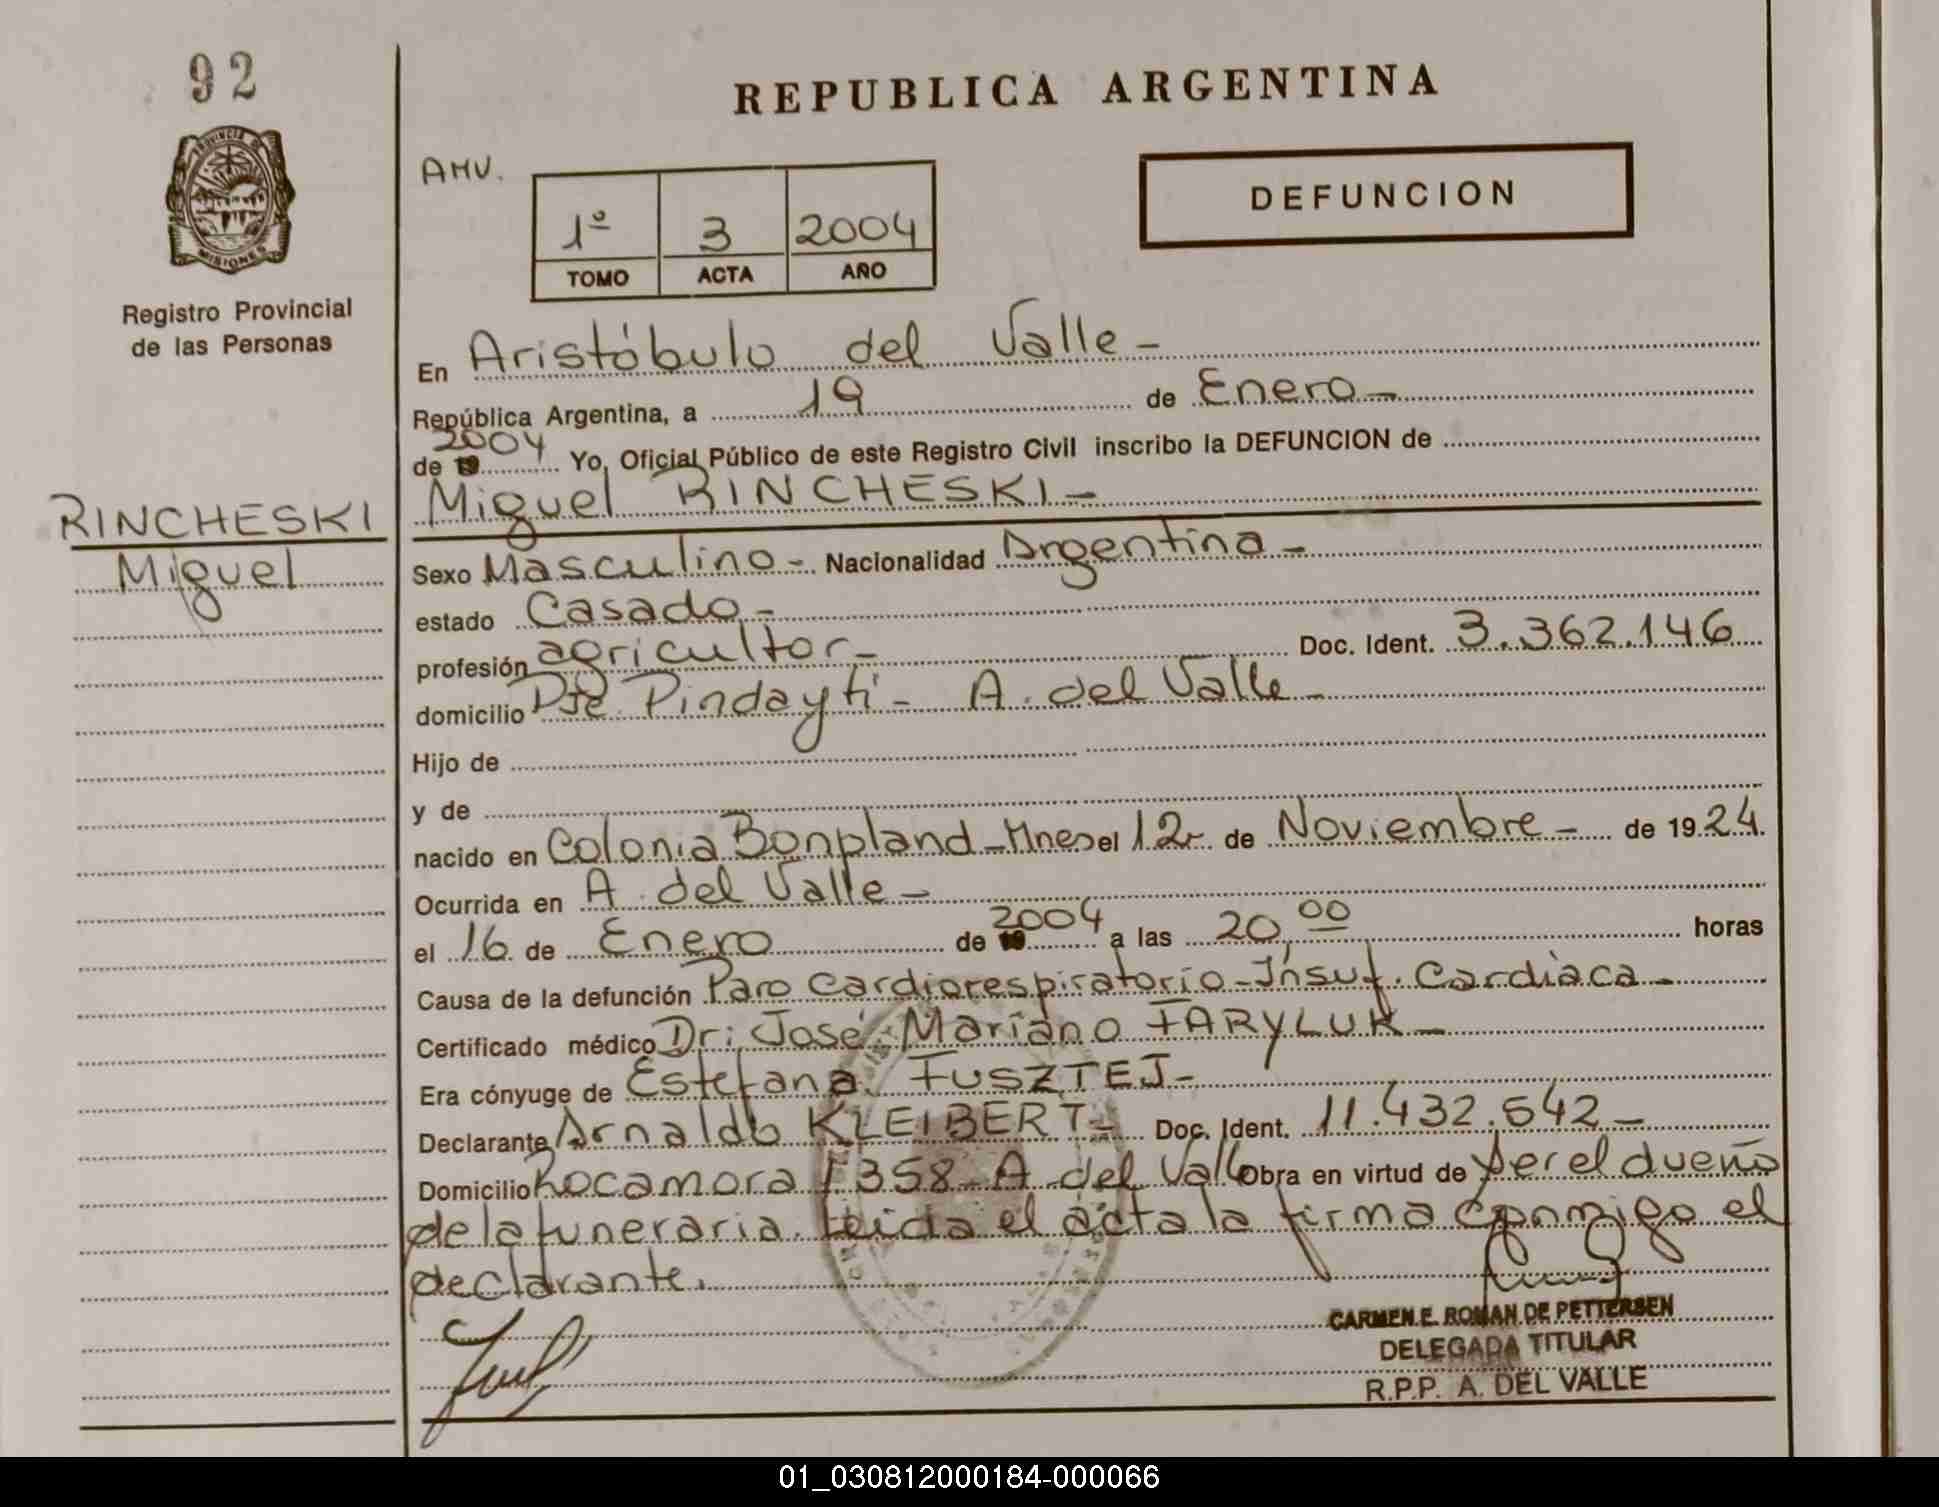 92
REPUBLICA ARGENTINA
PROVINCIA DE
MISIONES
Registro Provincial
de las Personas
AMV.
1º 3 2004
TOMO ACTA AÑO
DEFUNCION
En Aristóbulo del Valle -
República Argentina, a 19 de Enero -
de 19 2004 Yo, Oficial Público de este Registro Civil inscribo la DEFUNCION de
RINCHESKI
Miguel
Miguel RINCHESKI -
Sexo Masculino - Nacionalidad Argentina -
estado Casado -
profesión agricultor - Doc. Ident. 3.362.146
domicilio Pje. Pindaytí - A. del Valle -
Hijo de
y de
nacido en Colonia Bonpland - Mnes el 12 - de Noviembre - de 1924
Ocurrida en A. del Valle -
el 16 de Enero de 19 2004 a las 20,00 horas
Causa de la defunción Paro Cardiorespiratorio - Insuf. Cardíaca -
Certificado médico Dr: José Mariano FARYLUK -
Era cónyuge de Estefana FUSZTEJ -
Declarante Arnaldo KLEIBERT - Doc. Ident. 11.432.542 -
Domicilio Rocamora 1358 - A del Valle Obra en virtud de ser el dueño
de la funeraria. Leida el acta la firma conmigo el
declarante.
CARMEN E. ROMAN DE PETTERSEN
DELEGADA TITULAR
R.P.P. A. DEL VALLE
01_030812000184-000066